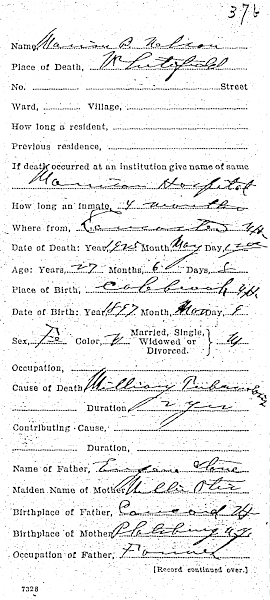 376
Name, Marion B. Nelson
Place of Death, Whitefield
No. Street
Ward, Village,
How long a resident,
Previous residence,
If death occurred at an institution give name of same
Morrison Hospital
How long an inmate, 4 months
Where from, Lancaster N.H.
Date of Death: Year, 1925 Month, May Day,
Age: Years, 27 Months, 6 Days,
Place of Birth, Colebrook N.H.
Date of Birth: Year, 1897 Month, Day,
Sex, Fe Color, W Married, Single, Widowed or Divorced. M
Occupation,
Cause of Death,
Duration, 2 yrs
Contributing Cause,
Duration,
Name of Father, Eugene Stone
Maiden Name of Mother,
Birthplace of Father, Concord
Birthplace of Mother,
Occupation of Father, Farmer
[Record continued over.]
7328